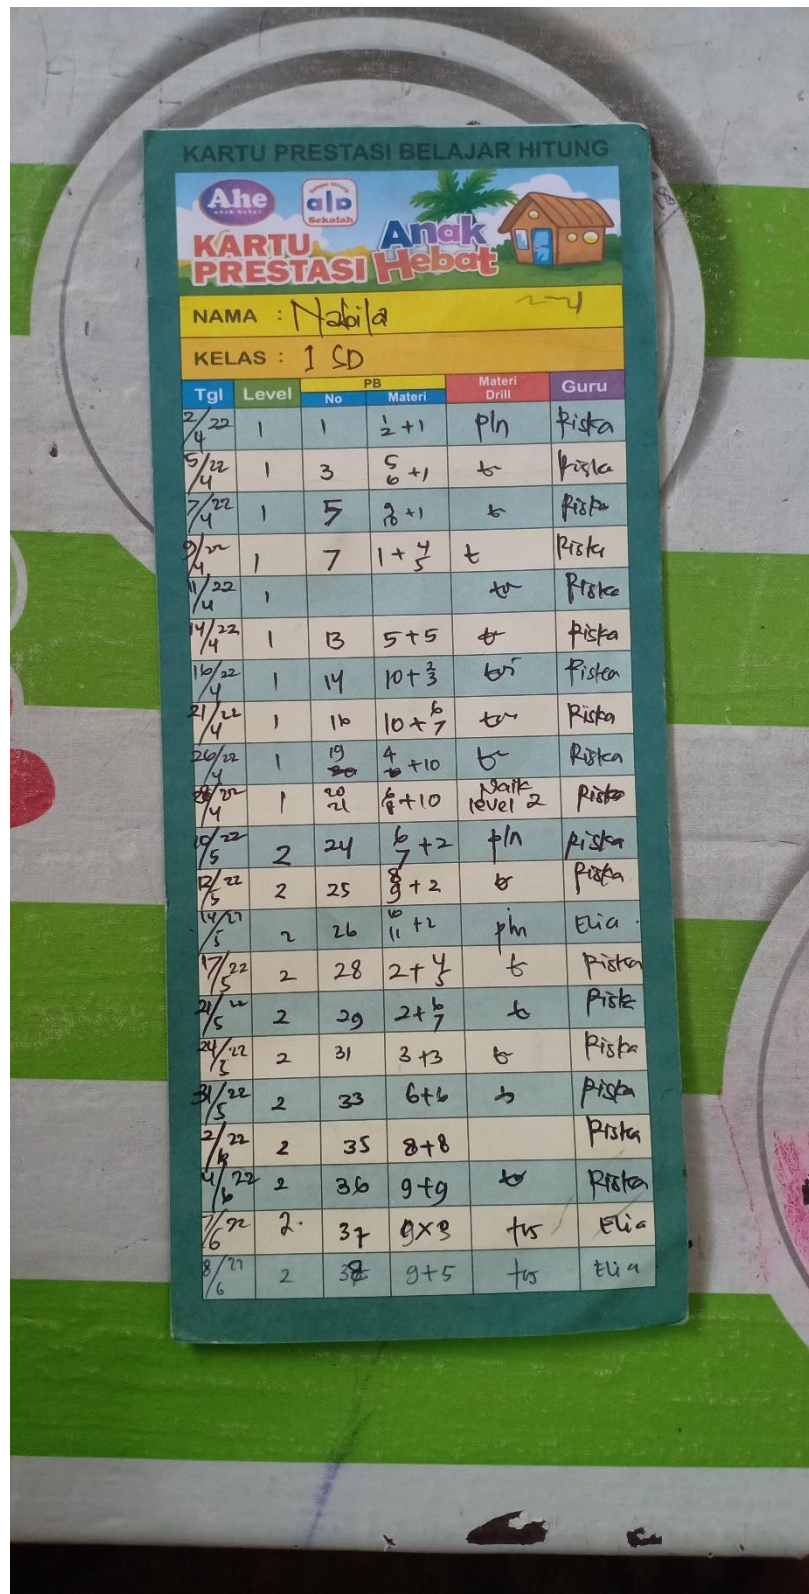 KARTU PRESTASI BELAJAR HITUNG
Ahe
anak hebat
Belajar Hitung
Sekolah
KARTU PRESTASI
Anak Hebat
NAMA : Nabila
KELAS : 1 SD
Tgl Level PB Materi Drill Guru
No Materi
2/4 22 1 1 1/2 +1 pln Riska
5/4 22 1 3 5/6 +1 Riska
7/4 22 1 5 +1 Riska
9/4 22 1 7 1+ 4/5 t Riska
11/4 22 1 Riska
14/4 22 1 13 5+5 Riska
16/4 22 1 14 10+ 2/3 Riska
21/4 22 1 16 10+ 6/7 Riska
26/4 22 1 19 4 +10 Riska
/4 22 1 20 21 6/8 +10 Naik level 2 Riska
10/5 22 2 24 6/7 +2 pln Riska
12/5 22 2 25 8/9 +2 Riska
14/5 22 2 26 10/11 +2 pln Elia
17/5 22 2 28 2+ 4/5 t Riska
21/5 22 2 29 2+ 6/7 t Riska
24/5 22 2 31 3+3 Riska
31/5 22 2 33 6+6 Riska
2/6 22 2 35 8+8 Riska
4/6 22 2 36 9+9 Riska
7/6 22 2. 37 9×3 trs Elia
8/6 22 2 38 9+5 trs Elia